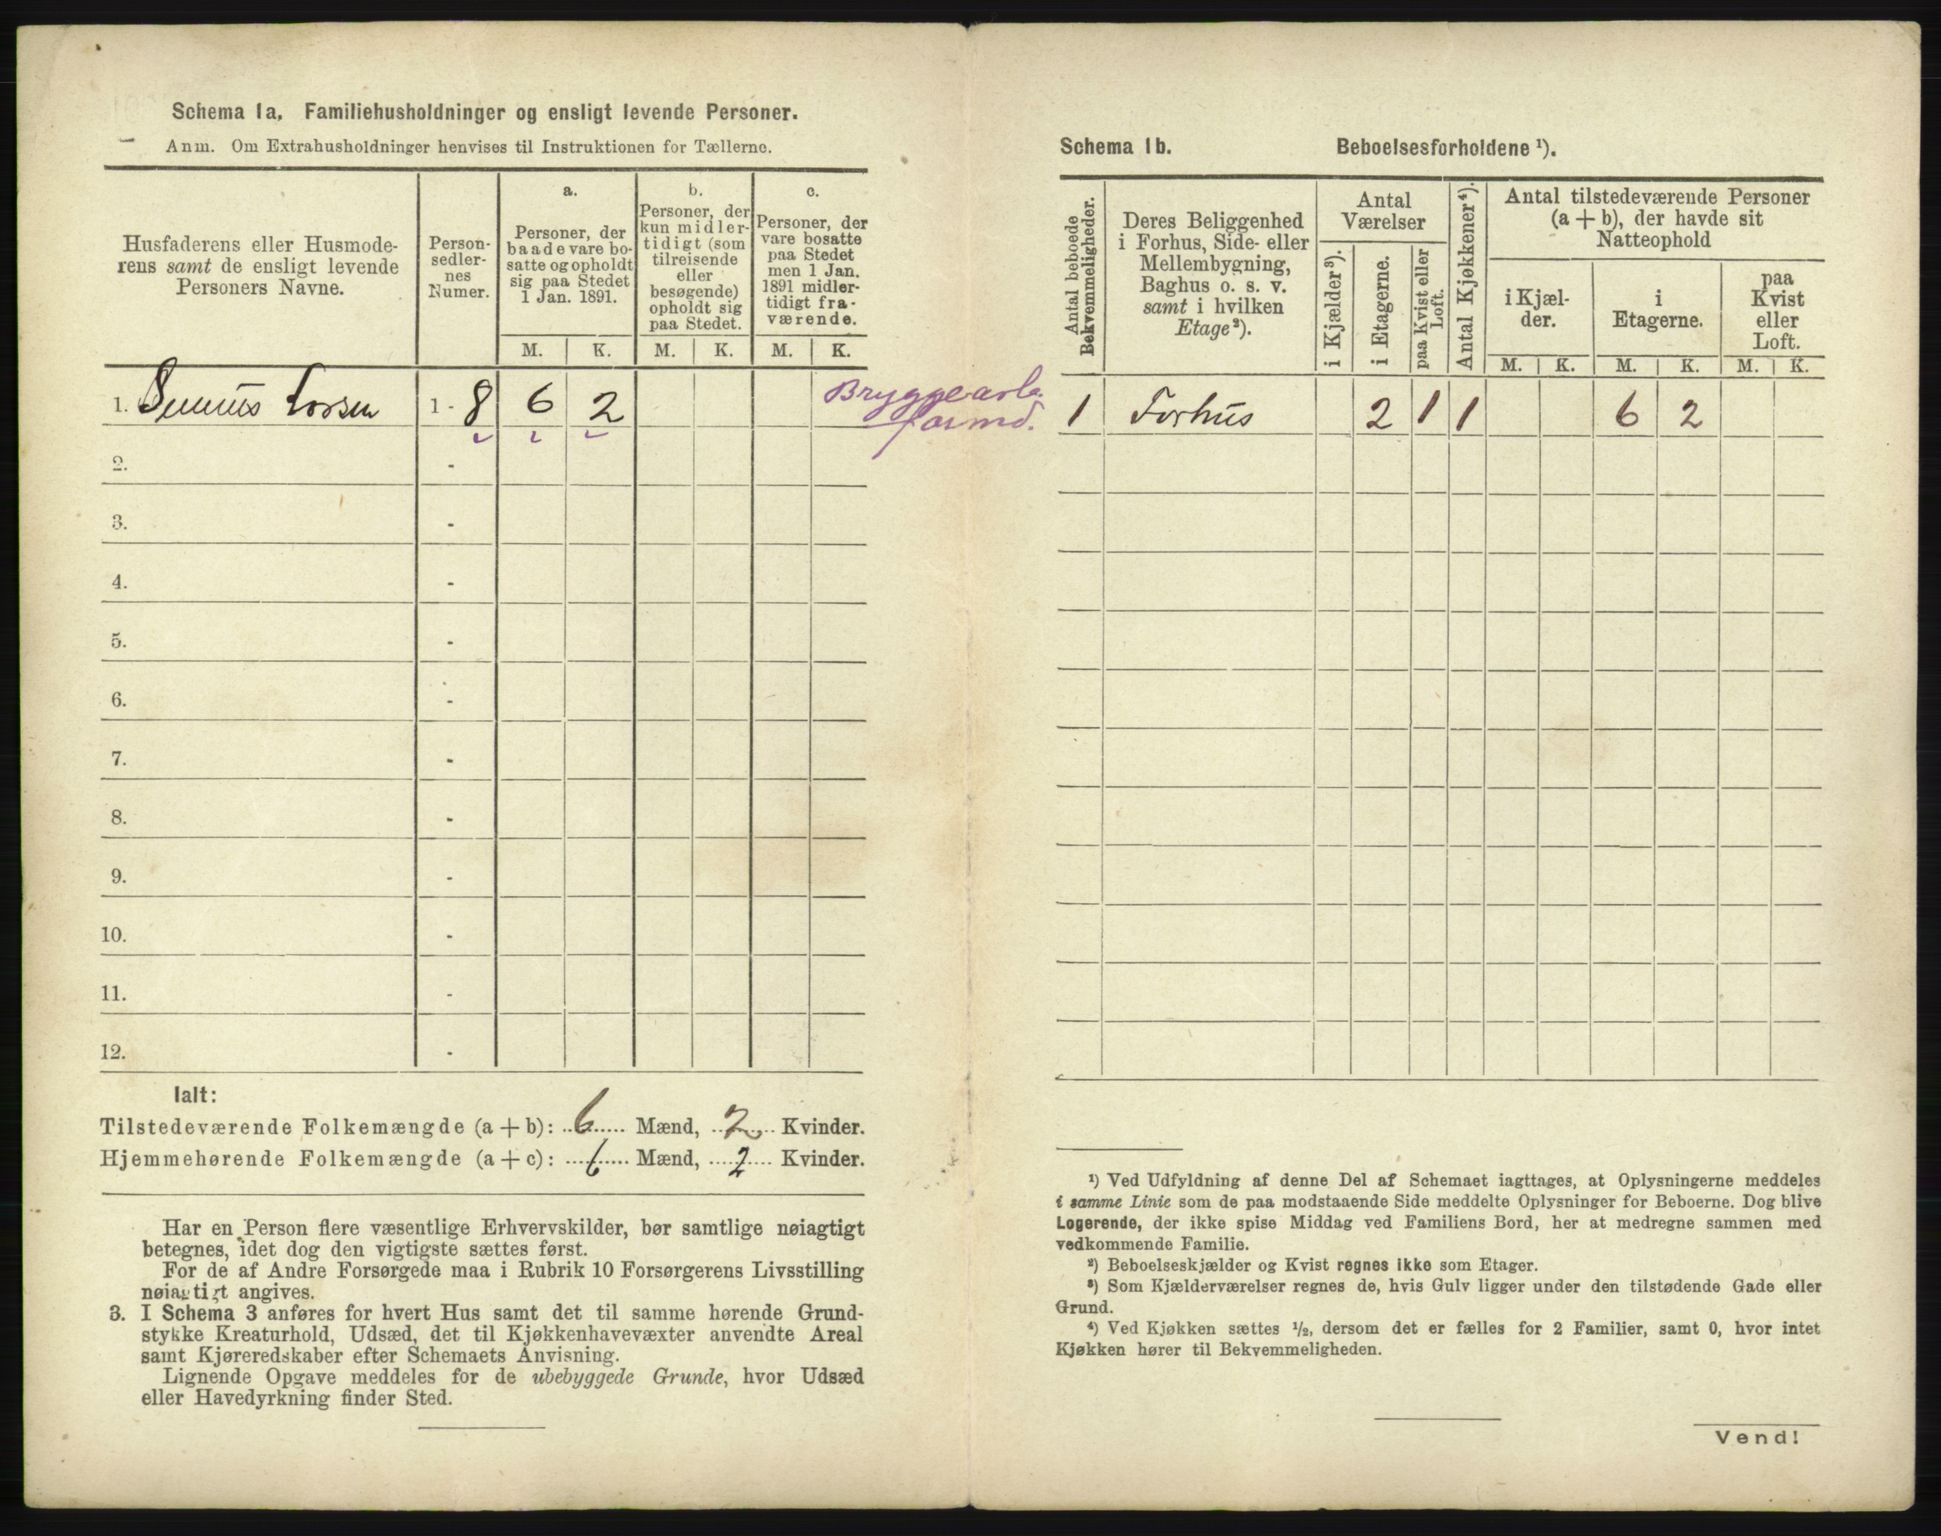 Schema 1a. Familiehusholdninger og ensligt levende Personer.
Anm. Om Extrahusholdninger henvises til Instruktionen for Tællerne.
Husfaderens eller Husmode-
rens samt de ensligt levende
Personers Navne.
Person-
sedler-
nes
Numer.
a.
Personer, der
baade vare bo-
satte og opholdt
sig paa Stedet
1 Jan. 1891.
b.
Personer, der
kun midler-
tidigt (som
tilreisende
eller
besøgende)
opholdt sig
paa Stedet.
c.
Personer, der
vare bosatte
paa Stedet
men 1 Jan.
1891 midler-
tidigt fra-
værende.
M. K. M. K. M. K.
1. Larsen 1 - 8 6 2
2. -
3. -
4. -
5. -
6. -
7. -
8. -
9. -
10. -
11. -
12. -
Ialt:
Tilstedeværende Folkemængde (a+b): 6 Mænd, 2 Kvinder.
Hjemmehørende Folkemængde (a+c): 6 Mænd, 2 Kvinder.
Har en Person flere væsentlige Erhvervskilder, bør samtlige nøiagtigt
betegnes, idet dog den vigtigste sættes først.
For de af Andre Forsørgede maa i Rubrik 10 Forsørgerens Livsstilling
nøiagtigt angives.
3. I Schema 3 anføres for hvert Hus samt det til samme hørende Grund-
stykke Kreaturhold, Udsæd, det til Kjøkkenhavevæxter anvendte Areal
samt Kjøreredskaber efter Schemaets Anvisning.
Lignende Opgave meddeles for de ubebyggede Grunde, hvor Udsæd
eller Havedyrkning finder Sted.
Schema 1b. Beboelsesforholdene ¹).
Antal beboede
Bekvemmeligheder.
Deres Beliggenhed
i Forhus, Side- eller
Mellembygning,
Baghus o. s. v.
samt i hvilken
Etage²).
Antal
Værelser
i Kjælder³).
i Etagerne.
paa Kvist eller
Loft.
Antal Kjøkkener⁴).
Antal tilstedeværende Personer
(a + b), der havde sit
Natteophold
i Kjæl-
der.
i
Etagerne.
paa
Kvist
eller
Loft.
M. K. M. K. M. K.
Bryggearb.
formd.
1 Forhus 2 1 1 6 2
¹) Ved Udfyldning af denne Del af Schemaet iagttages, at Oplysningerne meddeles
i samme Linie som de paa modstaaende Side meddelte Oplysninger for Beboerne. Dog blive
Logerende, der ikke spise Middag ved Familiens Bord, her at medregne sammen med
vedkommende Familie.
²) Beboelseskjælder og Kvist regnes ikke som Etager.
³) Som Kjælderværelser regnes de, hvis Gulv ligger under den tilstødende Gade eller
Grund.
⁴) Ved Kjøkken sættes ¹/₂, dersom det er fælles for 2 Familier, samt 0, hvor intet
Kjøkken hører til Bekvemmeligheden.
Vend!